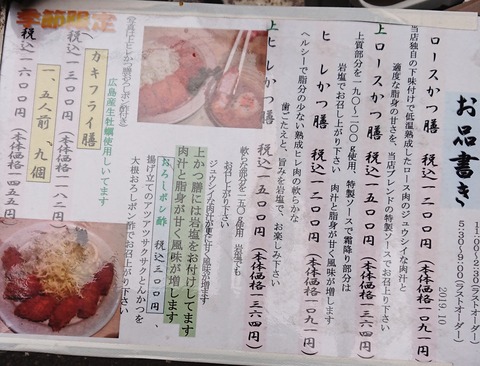 お品書き
11:00~2:30(ラストオーダー)
5:30~9:00(ラストオーダー)
2019.10
ロースかつ膳 税込一二〇〇円(本体価格一〇九一円)
当店独自の下味付けで低温熟成したロース肉のジュウシイな肉汁と
適度な脂身の甘さを、当店ブレンドの特製ソースでお召上り下さい
上ロースかつ膳 税込一五〇〇円(本体価格一三六四円)
上質部分を一九〇~二〇〇g使用、特製ソースで霜降り部分は
岩塩でお召し上がり下さい 肉汁と脂身が甘く風味が増します
ヒレかつ膳 税込一二〇〇円(本体価格一〇九一円)
ヘルシーで脂分の少ない熟成ヒレ肉の軟らかな
歯ごたえと、旨みを岩塩で、お楽しみ下さい
上ヒレかつ膳 税込一五〇〇円(本体価格一三六四円)
軟らか部分を一五〇g使用 岩塩でも
お召し上がり下さい
ジュウシイな肉汁が更に甘く風味が増ます
上かつ膳には岩塩をお付けしてます
肉汁と脂身が甘く風味が増します
おろしポン酢 税込三〇〇円、
揚げ立てのアツアツサクサクとんかつを
大根おろしポン酢でお召上がり下さい
写真は上ヒレかつ膳(おろしポン酢付き)
季節限定
広島産生牡蠣使用しいてます
カキフライ膳
税込一三〇〇円(本体価格一一八二円)
一、五人前、九個
税込一六〇〇円(本体価格一四五五円)